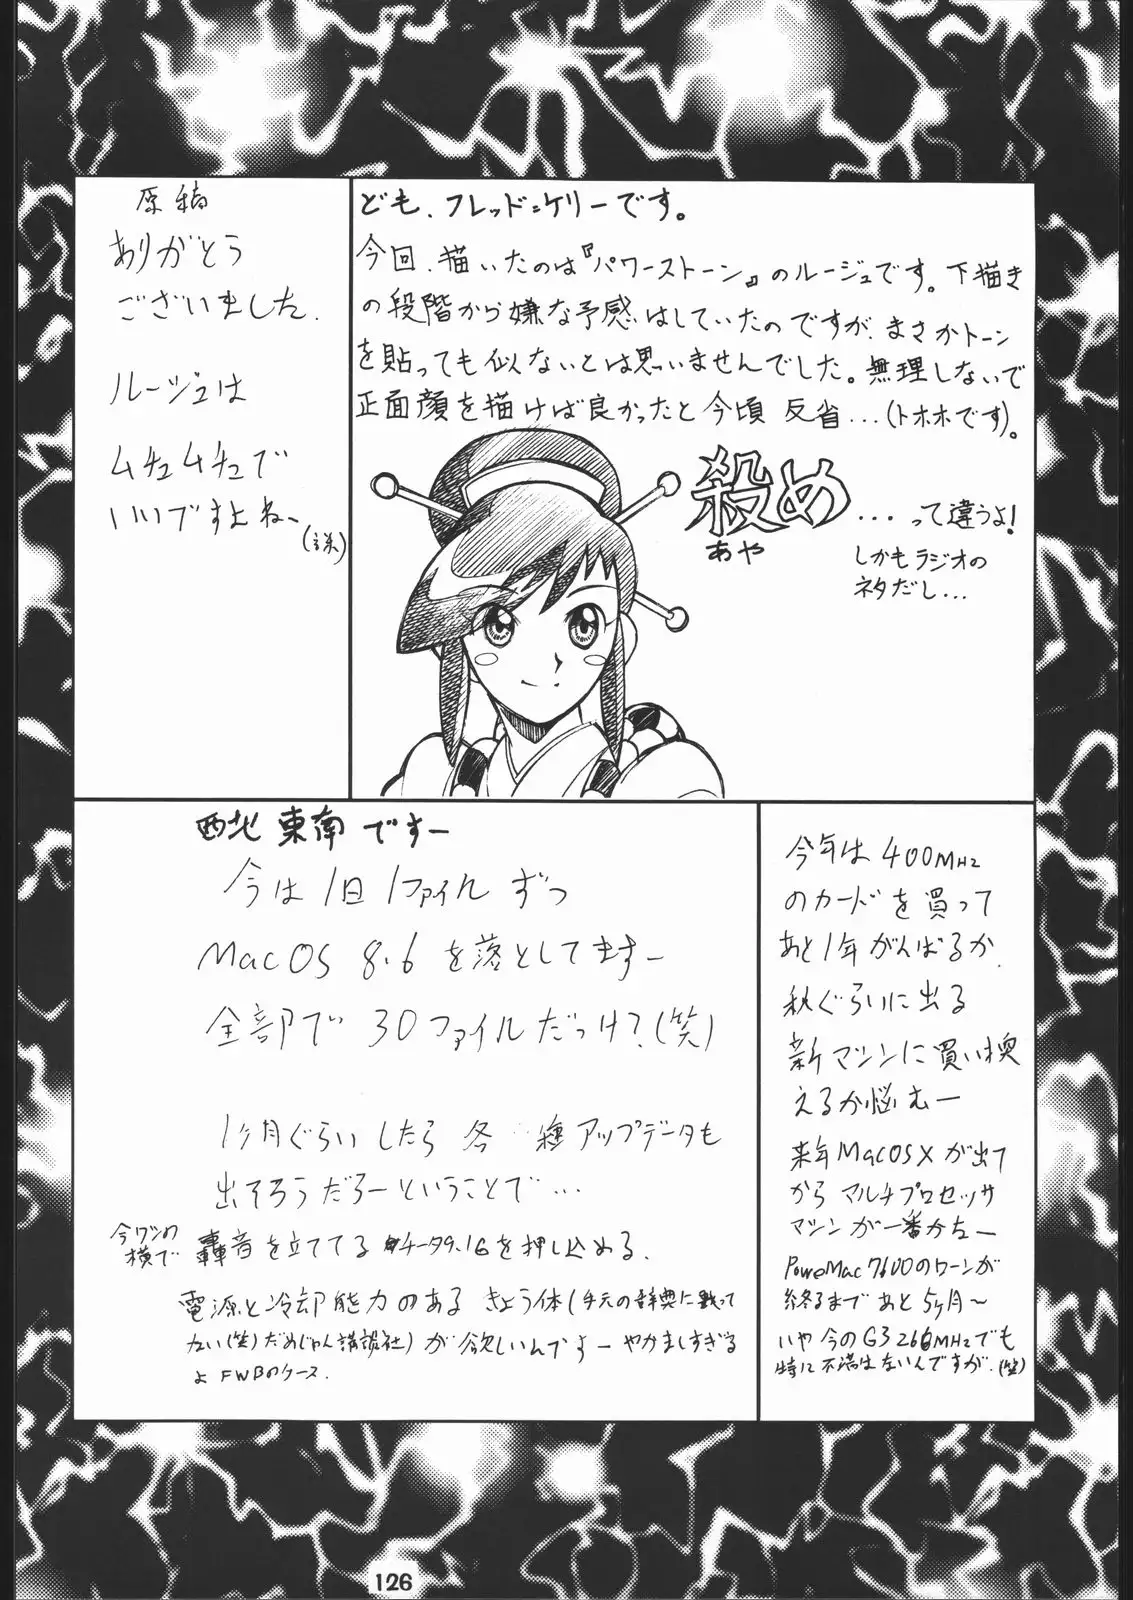 原稿
ありがとう
ございました.
ルージュは
ムチュムチュで
いいですよねー
ども、フレッド=ケリーです。
今回、描いたのは『パワーストーン』のルージュです。下描き
の段階から嫌な予感はしていたのですが、まさかトーン
を貼っても似ないとは思いませんでした。無理しないで
正面顔を描けば良かったと今頃 反省...(トホホです)。
殺め
あや
...って違うよ!
しかもラジオの
ネタだし...
西北東南ですー
今は1日1ファイルずつ
MacOS 8.6を落としてますー
全部で30ファイルだっけ?(笑)
1ヶ月ぐらいしたら各種アップデータも
出そろうだろーということで...
今ワシの
横で
轟音を立ててるチータ9.1Gを押し込める.
電源と冷却能力のあるきょう体(手元の辞典に載って
ない(笑)だめじゃん講談社)が欲しいんですーやかましすぎる
よFWBのケース.
今年は400MHz
のカードを買って
あと1年がんばるか.
秋ぐらいに出る
新マシンに買い換
えるか悩むー
来年MacOSXが出て
から マルチプロセッサ
マシンが一番かなー
PoweMac7600のローンが
終るまであと5ヶ月〜
いや今のG3 266MHzでも
特に不満はないんですが.(笑)
126